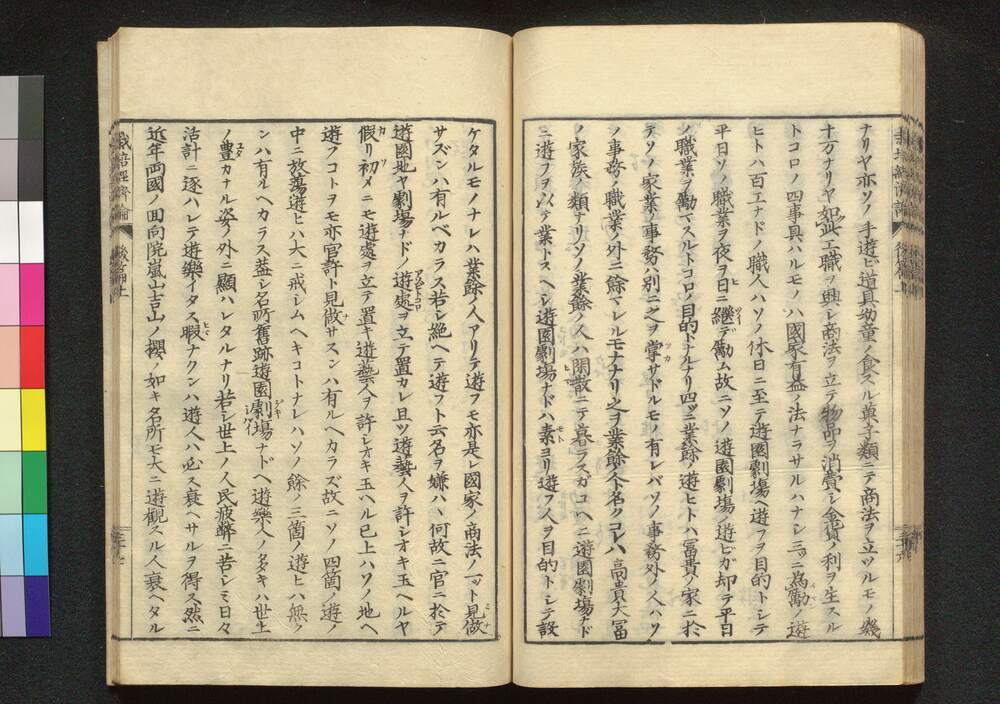 ナリヤ亦ソノ手遊ビ道具幼童ノ食スル菓子類ニテ商法ヲ立ツルモノ幾
十万ナリヤ如此工職ヲ興シ商法ヲ立テ物品ヲ消費シ金貨ノ利ヲ生スル
トコロノ四事具ハルモノハ國家有益ノ法ナラサルハナシ三ッニ為勵ニ遊
ヒトハ百工ナドノ職人ハソノ休日ニ至テ遊園劇場ヘ遊フヲ目的トシテ
平日ソノ職業ヲ夜ヲ日ニ繼デ勵ム故ニソノ遊園劇場ノ遊ビガ却テ平日
ノ職業ヲ勵マスルトコロノ目的トナルナリ四ッニ業餘ノ遊ヒトハ冨貴ノ家ニ於
テソノ家業ノ事務ハ別ニ之ヲ掌サドルモノ有レバソノ事務外ノ人ハソ
ノ事務ノ職業ノ外ニ餘マレルモナナリ之ヲ業餘ノ人ト名ククコレハ高貴大冨
ノ家族ノ類ナリソノ業餘ノ人ハ閑散ニテ暮ラスガユヘニ遊園劇場ナド
ニ遊フヲ以テ業トスヘシ遊園劇場ナドハ素ヨリ遊フ人ヲ目的トシテ設
ケタルモノナレハ業餘ノ人アリテ遊フモ亦是レ國家ノ商法ノ一ット見做
サズンハ有ルベカラス若シ絶ヘテ遊フト云名ヲ嫌ハヽ何故ニ官ニ於テ
遊園地ヤ劇場ナドノ遊處ヲ立テ置カレ且ツ遊藝人ヲ許シオキ玉ヘルヤ
假リ初メニモ遊處ヲ立テ置キ遊藝人ヲ許シオキ玉ヘル已上ハソノ地ヘ
遊フコトヲモ亦官許ト見做サスンハ有ルヘカラズ故ニソノ四箇ノ遊ノ
中ニ放蕩遊ヒハ大ニ戒シムヘキコトナレハソノ餘ノ三箇ノ遊ヒハ無ク
ンハ有ルヘカラス蓋シ名所舊跡遊園劇場ナドヘ遊樂人ノ多キハ世上
ノ豊カナル姿ノ外ニ顯ハレタルナリ若シ世上ノ人民疲弊ニ苦シミ日々
活計ニ逐ハレテ遊樂イタス暇ナクンハ遊人ハ必ス衰ヘサルヲ得ス然ニ
近年両國ノ回向院嵐山吉山ノ櫻ノ如キ名所モ大ニ遊觀スル人衰ヘタル
栽培經濟論